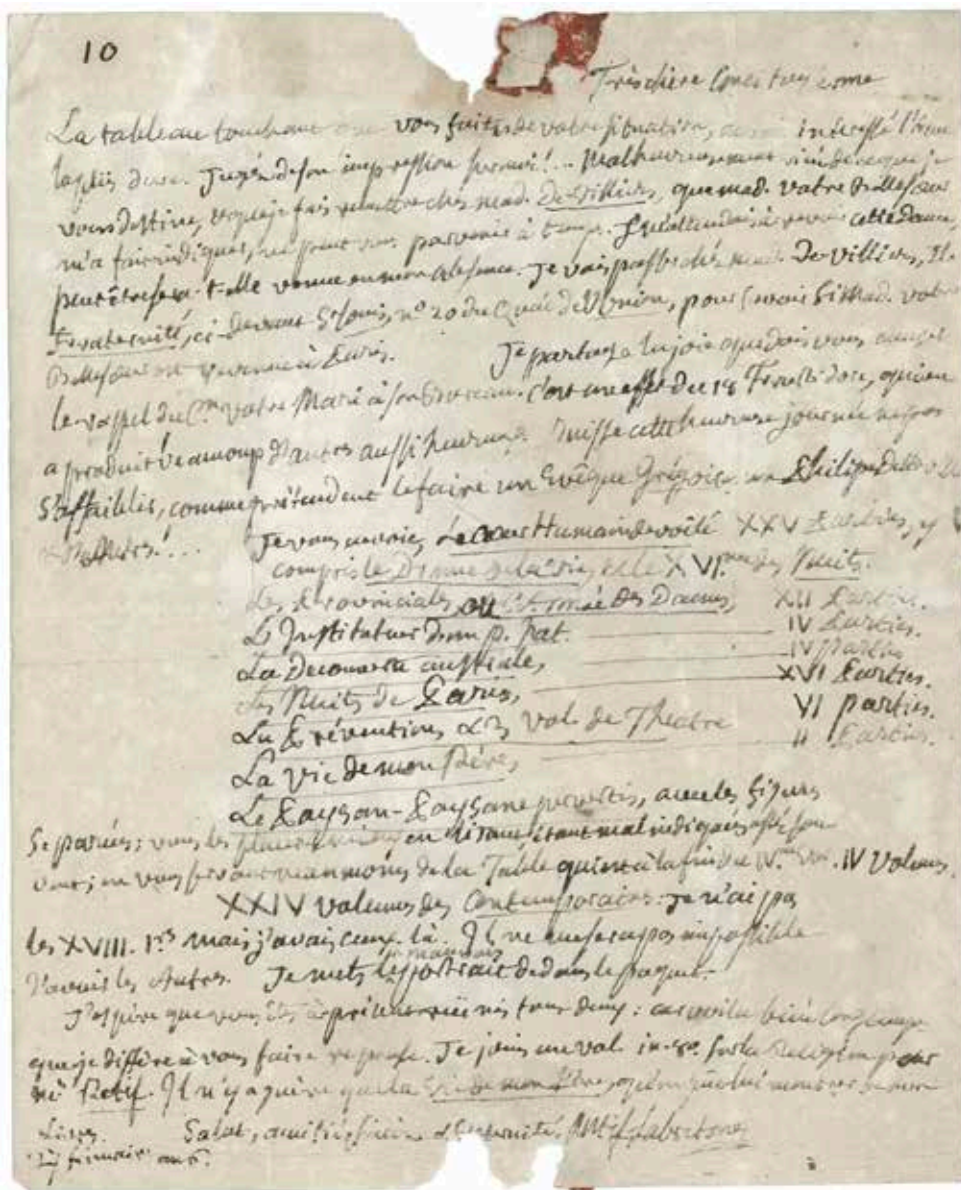 10
Très chère
La tableau touchant que vous faites de votre situation, interessé l'âme
la plus dure. Jugés de son impression sur moi!.. Malheureusement rién de ce que je
vous destine, et que je fais remettre chés mad. De Villiers, que mad. votre Bellesœur
m'a fait indiquer, ne peut vous parvenir à temps. J'attendais à revoir cette dame,
peut être sera-t-elle venue en mon absence. Je vais passer chés mad. De Villiers, Il.
Fraternité, ci-devant St-Louis, n° 20 du Quai de l'Union, pour savoir si Mad. votre
Bellesœur est revenue à Paris. Je partage la joie que dois vous causer
le rappel du C.en votre Mari à son Bureau. C'ést un effet du 18 Fructidor, qui en
a produit beaucoup d'autres aussi heureux. Puisse cette heureuse journée ne pas
s'affaiblir, comme prétendent le faire un Evêque Grégoire, un Philippe
& d'autres!...
Je vous envoie, Le Cœur Humain devoilé XXV Parties, y
compris le Drame de la vie, et le XVI.me des Nuits.
Les Provinciales, ou L'Année des Dames, XII Parties.
L'Instituteur d'un p. Nat. IV Parties.
La Decouverte australe, IV parties
Les Nuits de Paris, XVI Parties.
La Prévention, & vol. de Théatre VI parties.
La vie de mon Père, II Parties.
Le Paysan-Paysane pervertis, avec les figures
séparées; vous les placerés en lisant, étant mal indiquées
vent; en vous servant neanmoins de la Table qui est à la fin du IV.me vol. IV Volumes.
XXIV volumes des Contemporaines: je n'ai pas
les XVIII. 1.rs mais j'avais ceux-là. Il ne me sera pas impossible
d'avoir les autres. Je mets le mauvais portrait dedans le paquet.
J'espère que vous êtes à présent réünis tous deux: car voila bién longtemps
que je diffère à vous faire reponse. Je joins un vol. in-8° sur la Religion par
Restif. Il n'y a guère que la Vie de mon Père, de mes
Livres. Salut, amitié, & fraternité. Restif-Labretone
27 frimaire an 6.